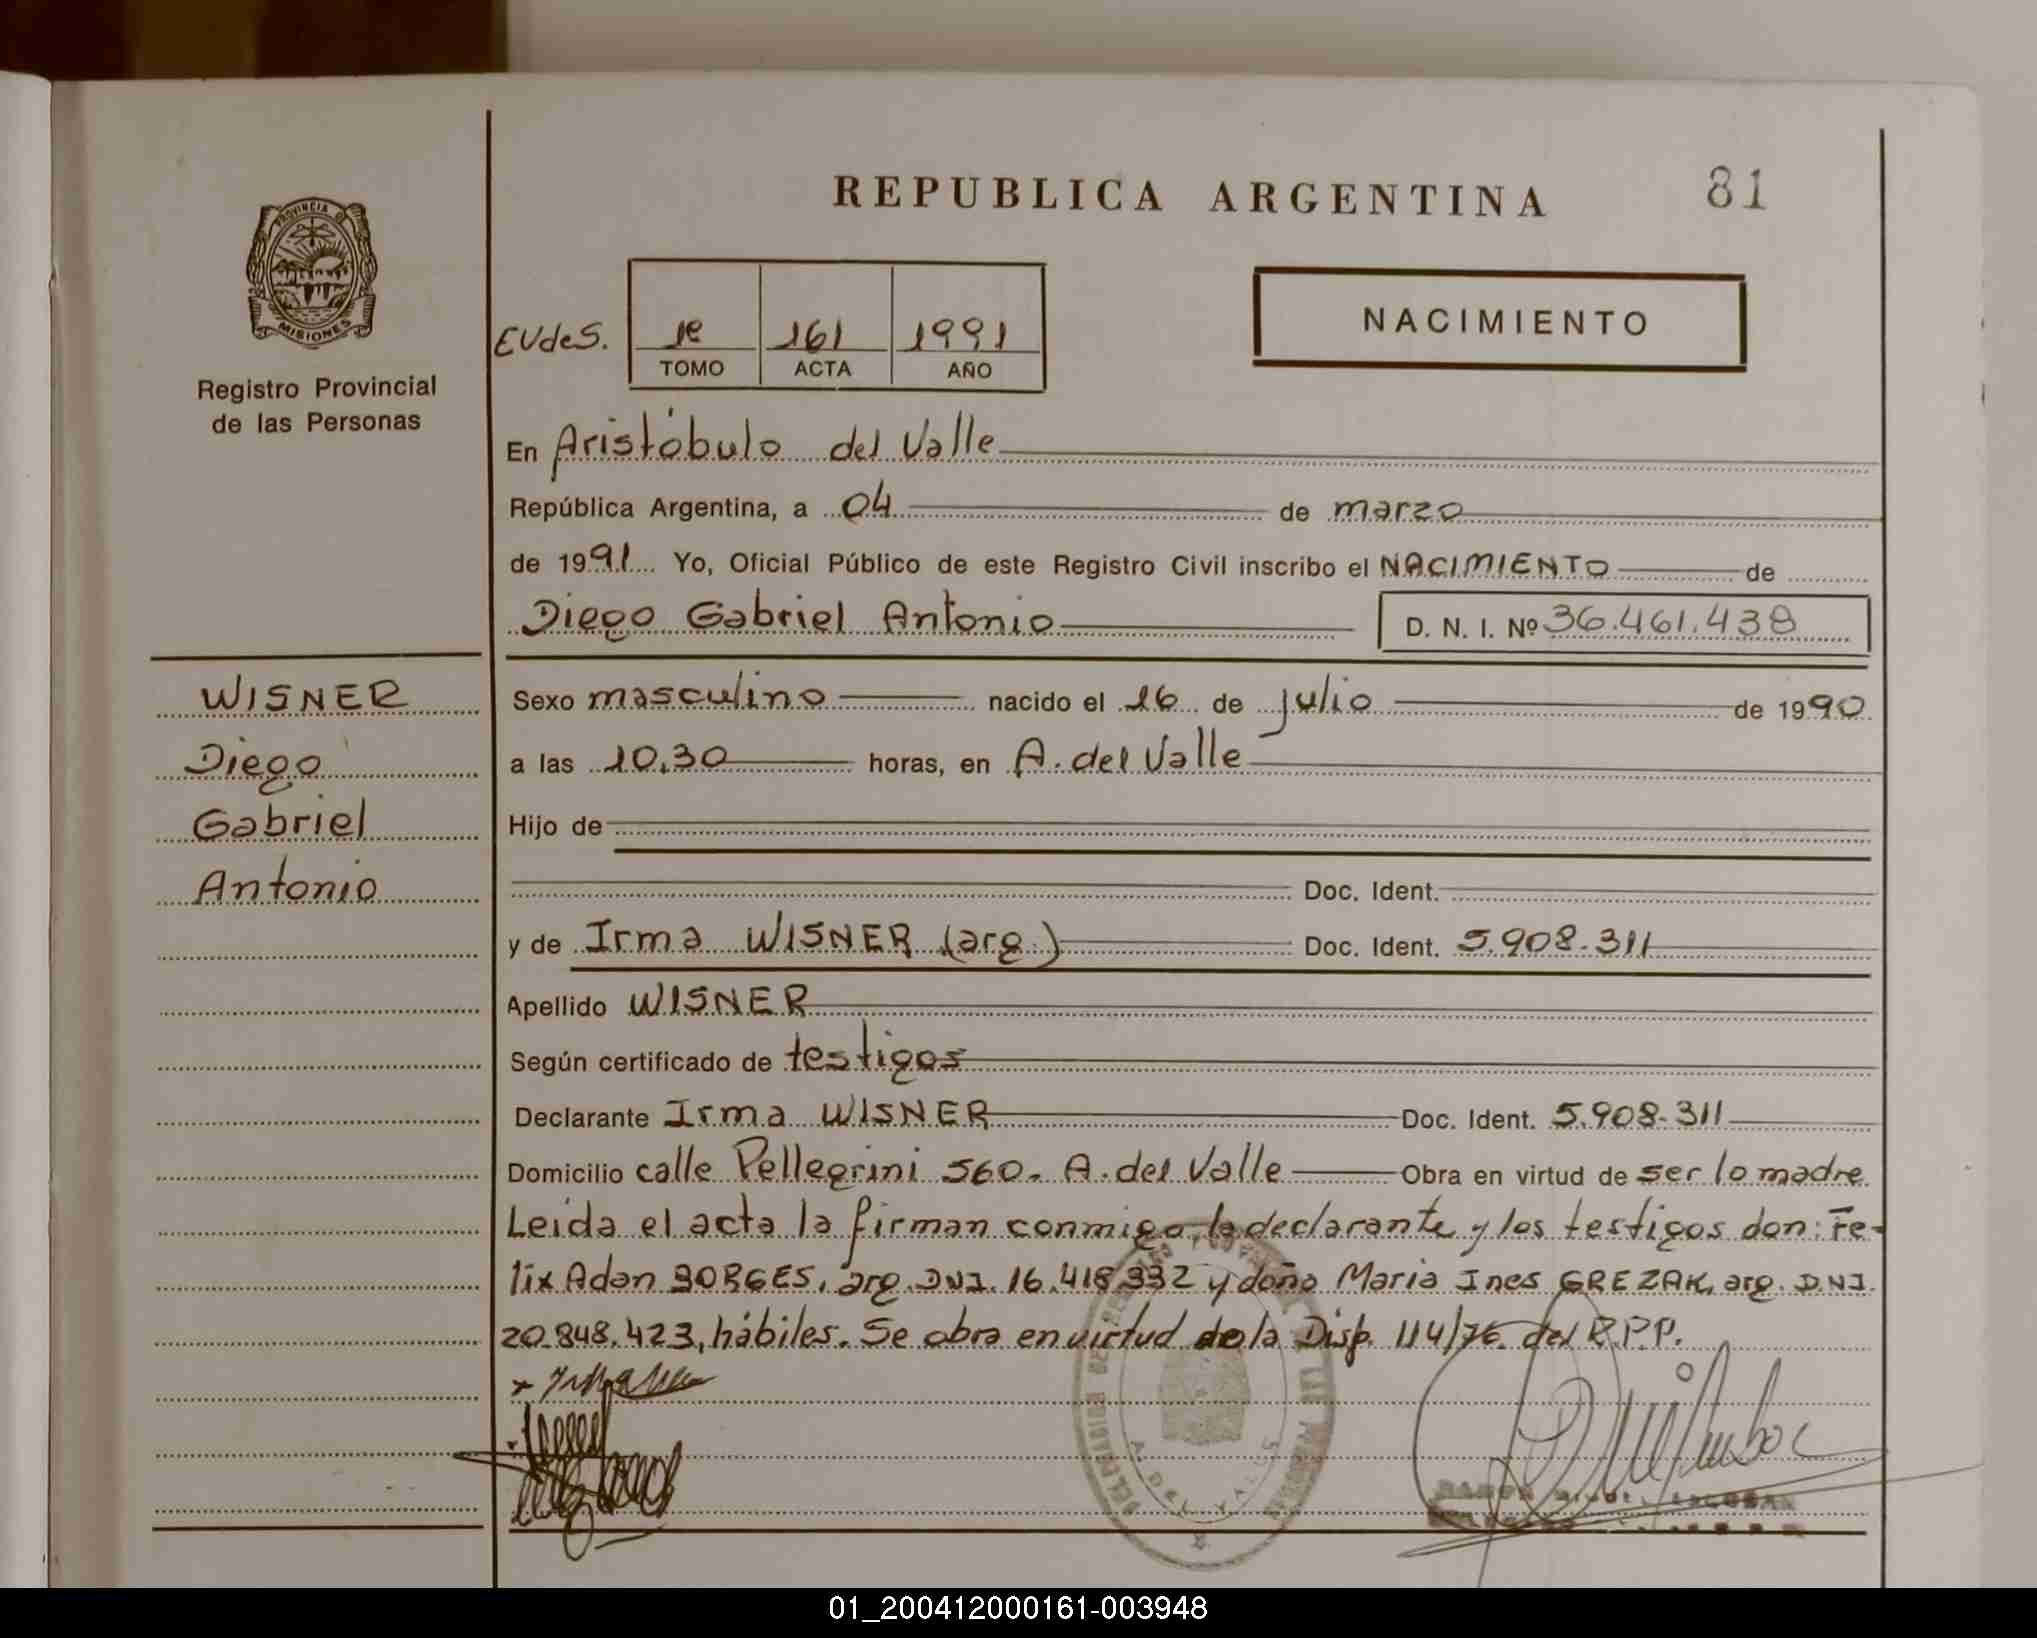 REPUBLICA ARGENTINA
81
PROVINCIA D
MISIONES
Registro Provincial
de las Personas
EUdeS.
1e 161 1991
TOMO ACTA AÑO
NACIMIENTO
En Aristóbulo del Valle
República Argentina, a 04 de marzo
de 1991 Yo, Oficial Público de este Registro Civil inscribo el NACIMIENTO de
Diego Gabriel Antonio D. N. I. Nº 36.461.438
WISNER
Diego
Gabriel
Antonio
Sexo masculino nacido el 16 de julio de 1990
a las 10,30 horas, en A. del Valle
Hijo de
Doc. Ident.
y de Irma WISNER (arg.) Doc. Ident. 5.908.311
Apellido WISNER
Según certificado de testigos
Declarante Irma WISNER Doc. Ident. 5.908.311
Domicilio calle Pellegrini 560. A. del Valle Obra en virtud de ser lo madre
Leída el acta la firman conmigo, la declarante y los testigos don: Fe-
lix Adan BORGES, arg. DNI. 16.418.332 y doña Maria Ines GREZAK, arg. D.N.I.
20.848.423, hábiles. Se obra en virtud de la Disp. 114/76 del R.P.P.
A. DEL VALLE
01_200412000161-003948